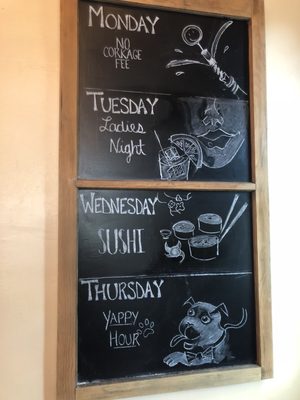 Monday
No
Corkage
Fee
Tuesday
Ladies
Night
Wednesday
Sushi
Thursday
Yappy
Hour